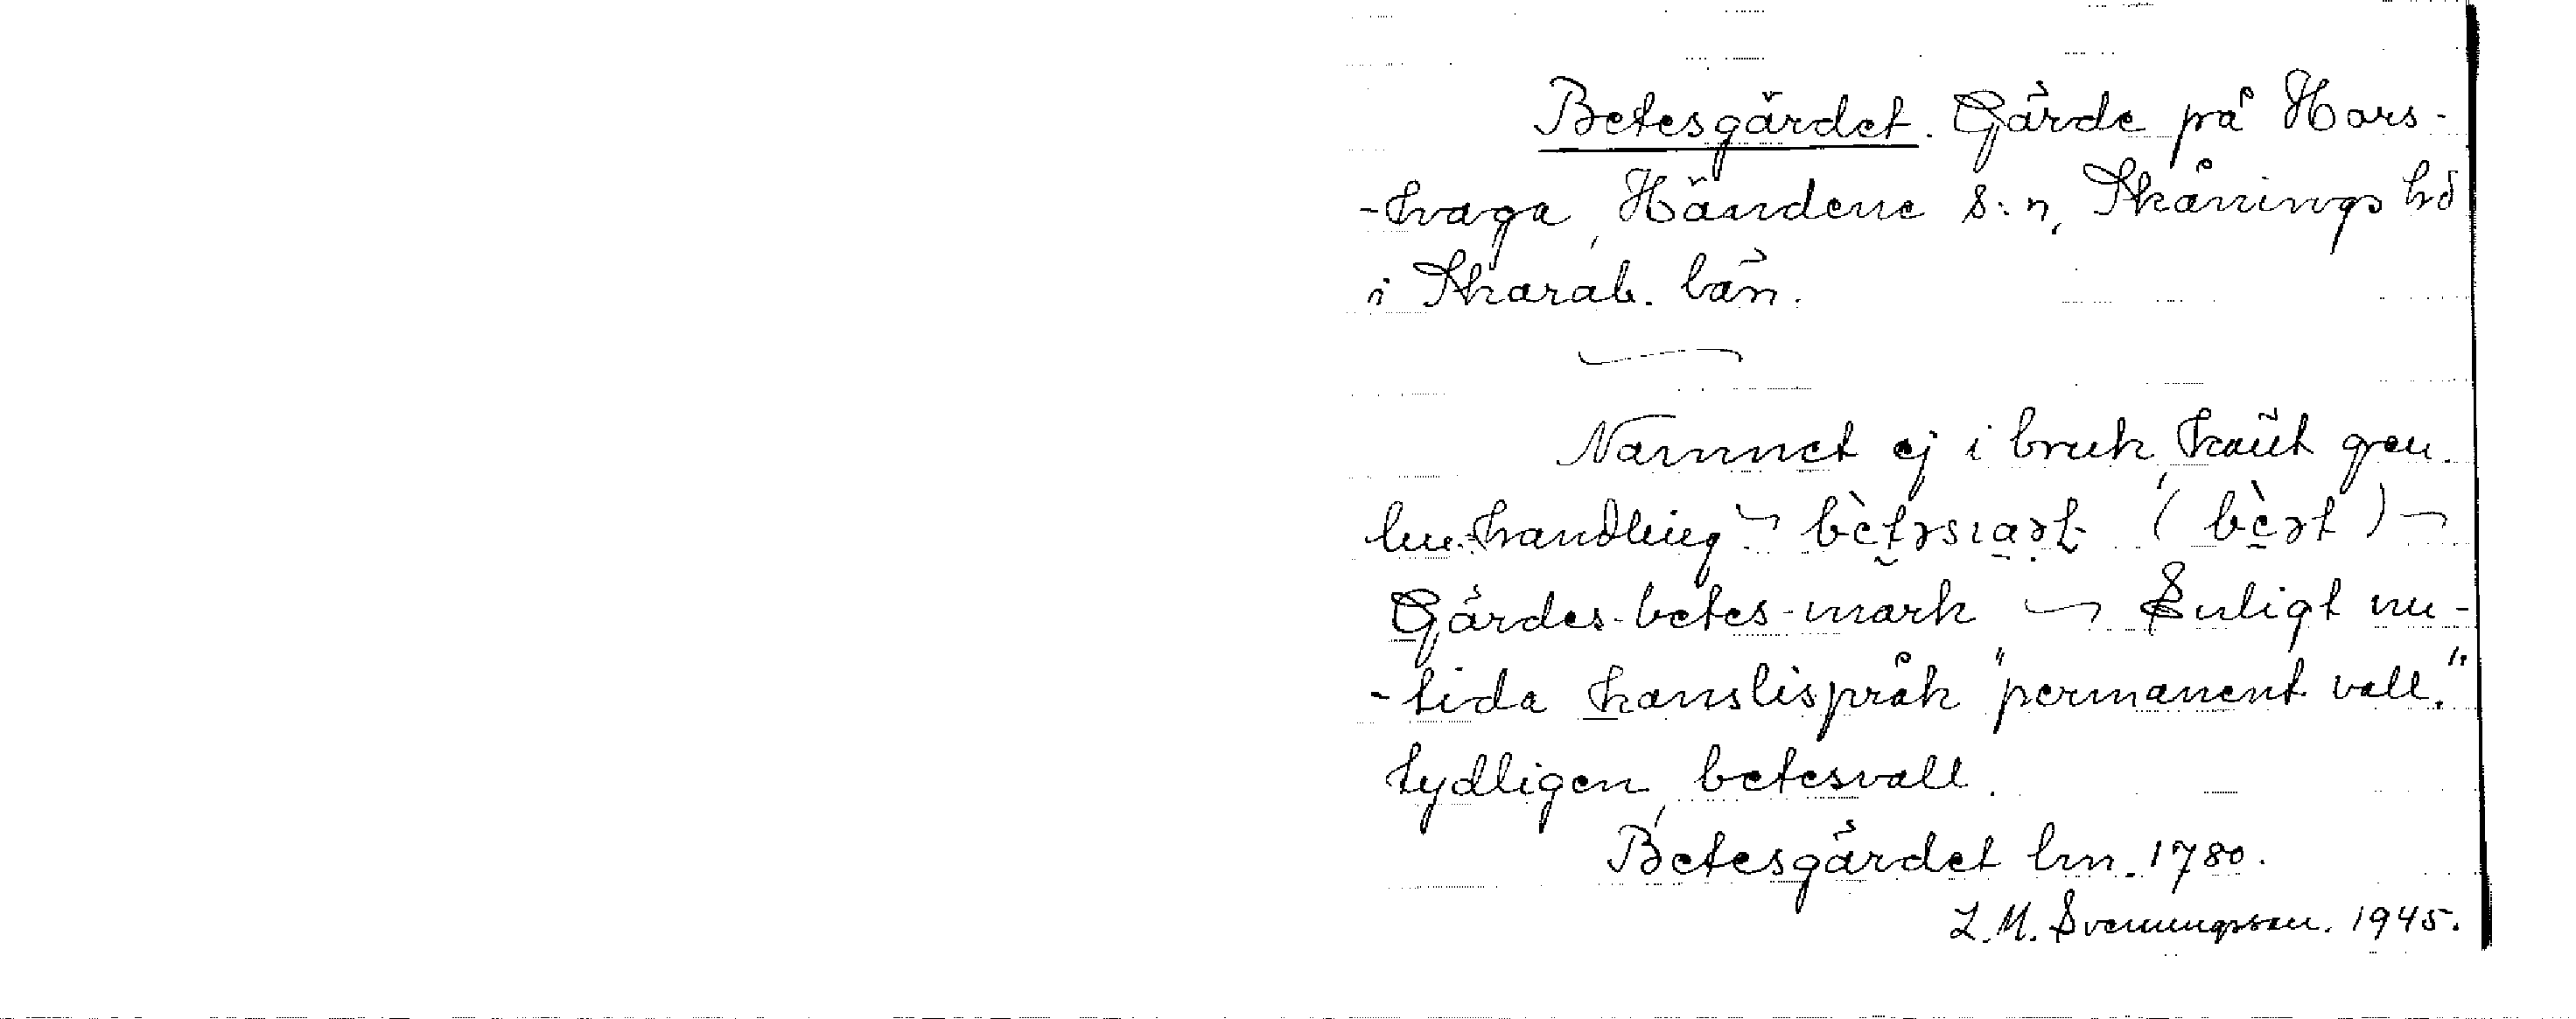 Betesgärdet. Gärde på Hors-
-haga, Händene s:n, Skånings hd
i Skarab. län.
Namnet ej i bruk, känt gen.
lm.-handling
Gärdes-betes-mark Enligt nu-
-tida kanslispråk "permanent vall."
tydligen, betesvall.
Betesgärdet lm. 1780.
L. M. Svenungsson. 1945.